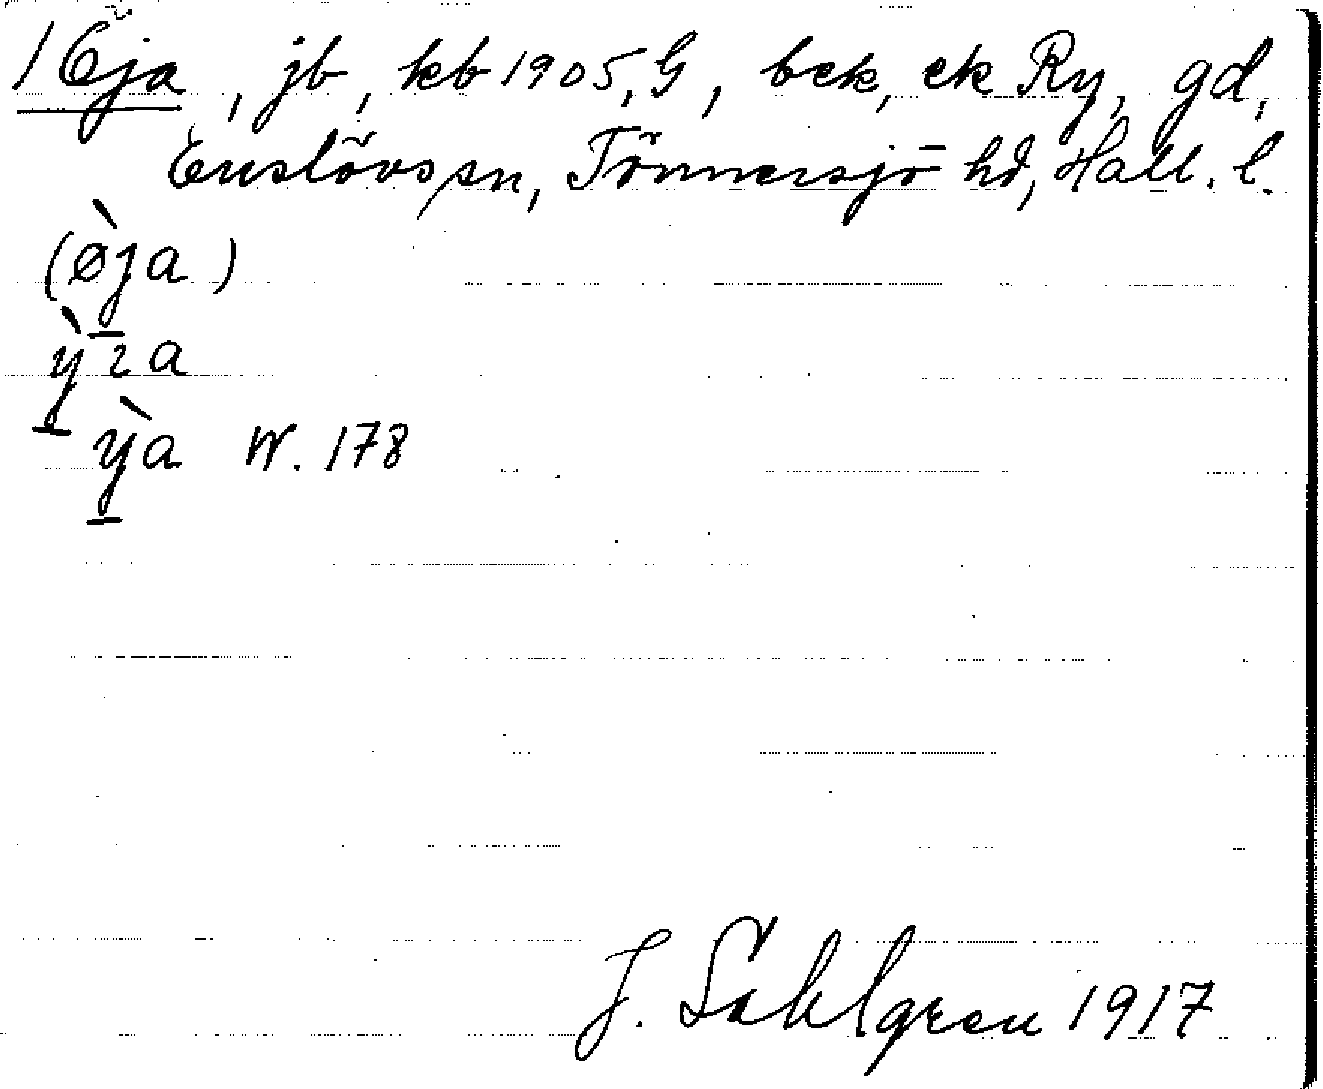 1 Öja, jb, kb 1905, G, bek, ek Ry, gd,
Enslövs sn, Tönnersjö hd, Hall. l.
(ø̀ja)
ỳɿa
ỳa W. 178
J. Sahlgren 1917